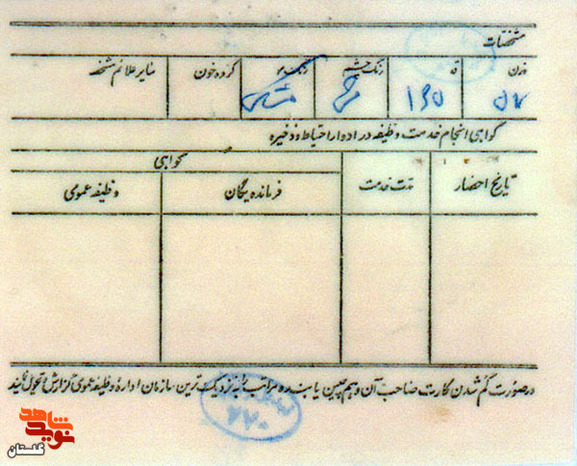 مشخصات
وزن قد رنگ چشم رنگ مو گروه خون سایر علائم مشخصه
۵۷ ۱۶۵ مشکی
گواهی انجام خدمت وظیفه در ادوار احتیاط و ذخیره
تاریخ احضار مدت خدمت گواهی
فرمانده یگان وظیفه عمومی
در صورت گم شدن کارت صاحب آن و همچنین یابنده مراتب را به نزدیک ترین سازمان ادارهٔ وظیفه عمومی گزارش یا تحویل نمایند
۷۷۰
نوید شاهد
گلستان